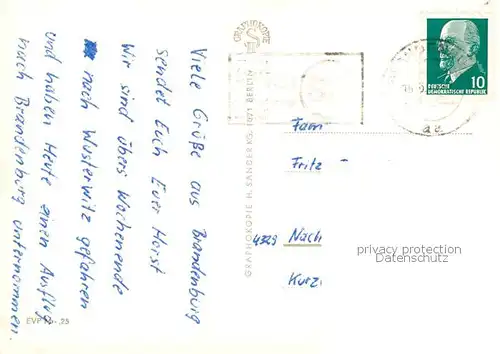 Viele Grüße aus Brandenburg
sendet Euch Euer Horst
Wir sind übers Wochenende
nach Wusterwitz gefahren
und haben Heute einen Ausflug
nach Brandenburg unternommen
EVP
25
GRAPHOKOPIE
GRAPHOKOPIE H. SANDER KG, 1071 BERLIN
10
DEUTSCHE
DEMOKRATISCHE REPUBLIK
Fam
Fritz
4329 Nach
Kurz
privacy protection
Datenschutz